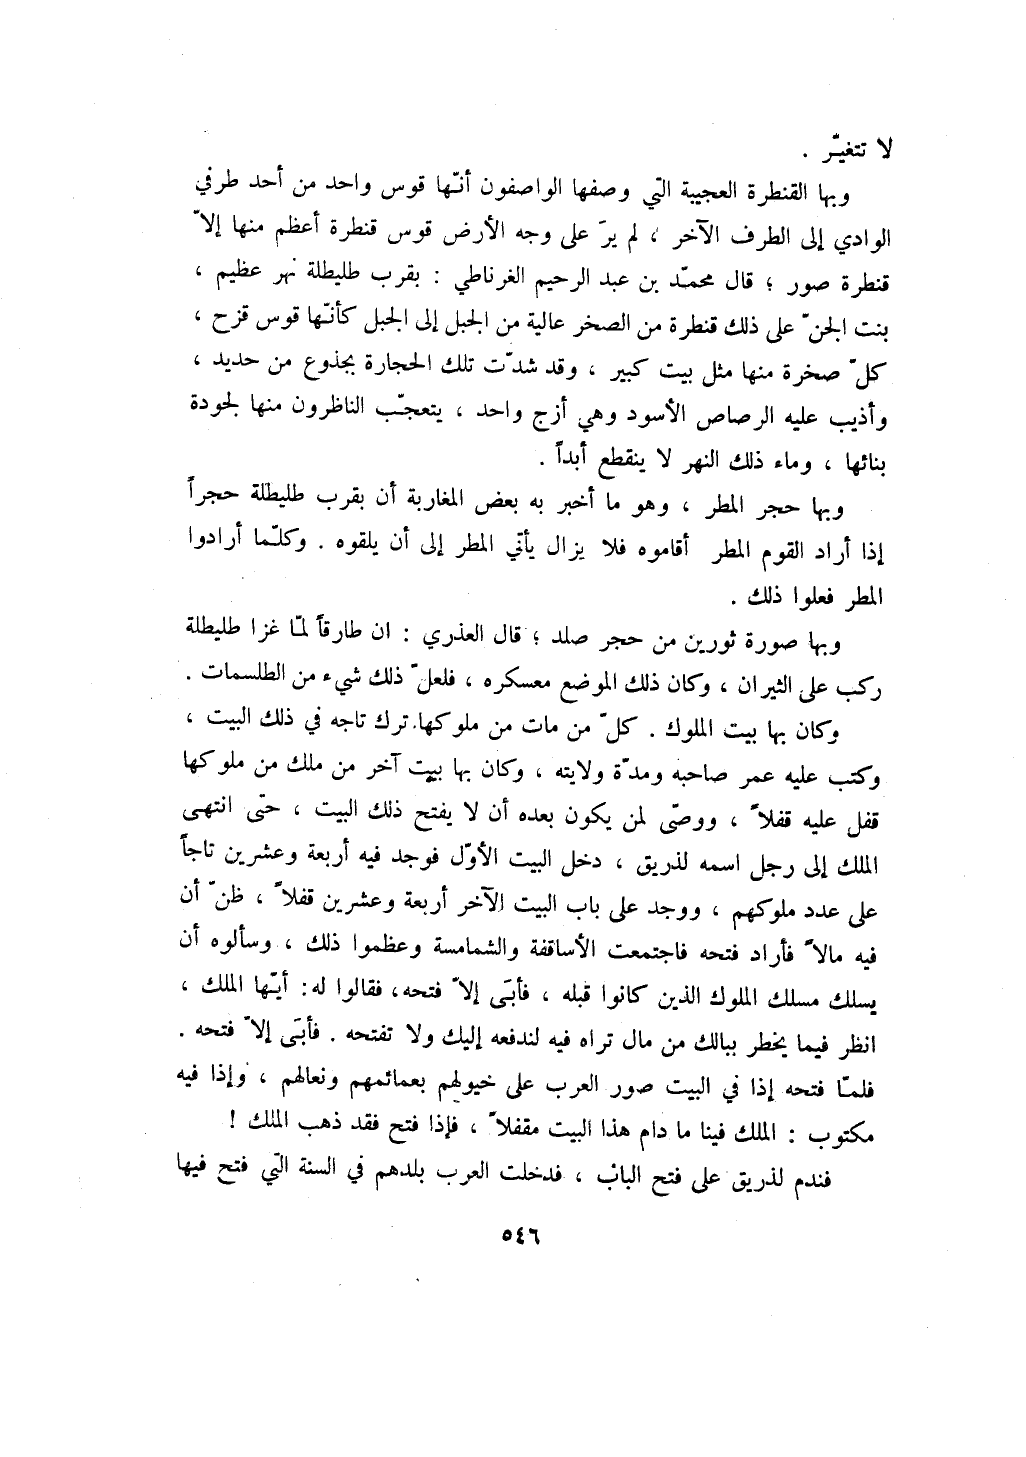 لا تتغيّر .
وبها القنطرة العجيبة التي وصفها الواصفون أنّها قوس واحد من أحد طرفي
الوادي إلى الطرف الآخر ، لم يرَ على وجه الأرض قوس قنطرة أعظم منها إلاّ
قنطرة صور ؛ قال محمّد بن عبد الرحيم الغرناطي : بقرب طليطلة نهر عظيم ،
بنت الجنّ على ذلك قنطرة من الصخر عالية من الجبل إلى الجبل كأنّها قوس قزح ،
كلّ صخرة منها مثل بيت كبير ، وقد شدّت تلك الحجارة بجذوع من حديد ،
وأذيب عليه الرصاص الأسود وهي أزج واحد ، يتعجّب الناظرون منها لجودة
بنائها ، وماء ذلك النهر لا ينقطع أبداً .
وبها حجر المطر ، وهو ما أخبر به بعض المغاربة أن بقرب طليطلة حجراً
إذا أراد القوم المطر أقاموه فلا يزال يأتي المطر إلى أن يلقوه . وكلّما أرادوا
المطر فعلوا ذلك .
وبها صورة ثورين من حجر صلد ؛ قال العذري : ان طارقاً لمّا غزا طليطلة
ركب على الثيران ، وكان ذلك الموضع معسكره ، فلعلّ ذلك شيء من الطلسمات .
وكان بها بيت الملوك . كلّ من مات من ملوكها ترك تاجه في ذلك البيت ،
وكتب عليه عمر صاحبه ومدّة ولايته ، وكان بها بيت آخر من ملك من ملوكها
قفل عليه قفلاً ، ووصّى لمن يكون بعده أن لا يفتح ذلك البيت ، حتّى انتهى
الملك إلى رجل اسمه لذريق ، دخل البيت الأوّل فوجد فيه أربعة وعشرين تاجاً
على عدد ملوكهم ، ووجد على باب البيت الآخر أربعة وعشرين قفلاً ، ظنّ أن
فيه مالاً فأراد فتحه فاجتمعت الأساقفة والشمامسة وعظموا ذلك ، وسألوه أن
يسلك مسلك الملوك الذين كانوا قبله ، فأبَى إلاّ فتحه، فقالوا له: أيّها الملك ،
انظر فيما يخطر ببالك من مال تراه فيه لندفعه إليك ولا تفتحه . فأبَى إلاّ فتحه .
فلمّا فتحه إذا في البيت صور العرب على خيولهم بعمائمهم ونعالهم ، وإذا فيه
مكتوب : الملك فينا ما دام هذا البيت مقفلاً ، فإذا فتح فقد ذهب الملك !
فندم لذريق على فتح الباب ، فدخلت العرب بلدهم في السنة التي فتح فيها
٥٤٦